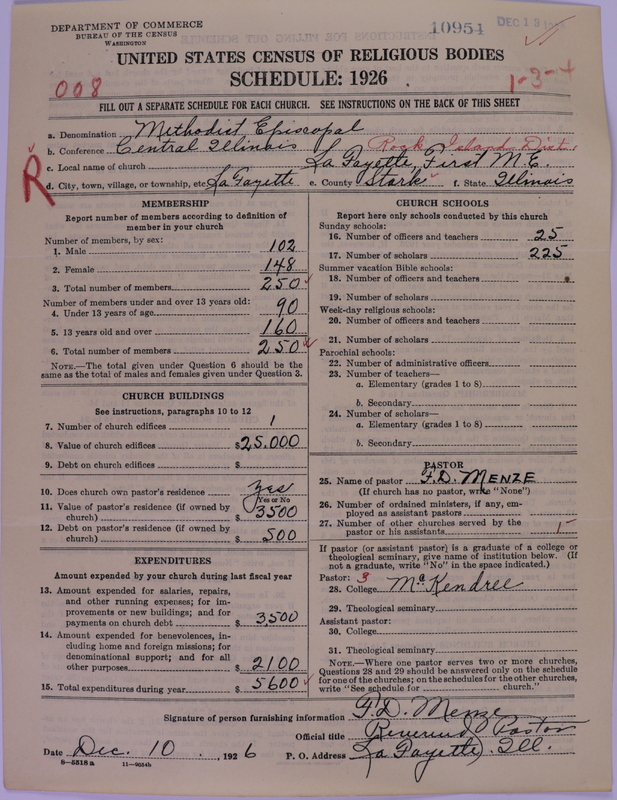 DEPARTMENT OF COMMERCE
BUREAU OF THE CENSUS
WASHINGTON
10954
DEC 13
UNITED STATES CENSUS OF RELIGIOUS BODIES
SCHEDULE: 1926
008
1-3-4
FILL OUT A SEPARATE SCHEDULE FOR EACH CHURCH. SEE INSTRUCTIONS ON THE BACK OF THIS SHEET
a. Denomination Methodist Episcopal
b. Conference Central Illinois Rock Island Dist.
c. Local name of church La Fayette, First M.E.
R
d. City, town, village, or township, etc. La Fayette e. County Stark f. State Illinois
MEMBERSHIP
Report number of members according to definition of
member in your church
Number of members, by sex:
1. Male 102
2. Female 148
3. Total number of members 250
Number of members under and over 13 years old:
4. Under 13 years of age 90
5. 13 years old and over 160
6. Total number of members 250
NOTE.—The total given under Question 6 should be
same as the total of males and females given under Question 3.
CHURCH BUILDINGS
See instructions, paragraphs 10 to 12
7. Number of church edifices 1
8. Value of church edifices $25.000
9. Debt on church edifices $
10. Does church own pastor's residence Yes
Yes or No
11. Value of pastor's residence (if owned by
church) $ 3500
12. Debt on pastor's residence (if owned by
church) $ 500
EXPENDITURES
Amount expended by your church during last fiscal year
13. Amount expended for salaries, repairs,
and other running expenses; for im-
provements or new buildings; and for
payments on church debt $ 3,500
14. Amount expended for benevolences, in-
cluding home and foreign missions; for
denominational support; and for all
other purposes $ 2100
15. Total expenditures during year $ 5600
CHURCH SCHOOLS
Report here only schools conducted by this church
Sunday schools:
16. Number of officers and teachers 25
17. Number of scholars 225
Summer vacation Bible schools:
18. Number of officers and teachers
19. Number of scholars
Week-day religious schools:
20. Number of officers and teachers
21. Number of scholars
Parochial schools:
22. Number of administrative officers
23. Number of teachers—
a. Elementary (grades 1 to 8)
b. Secondary
24. Number of scholars—
a. Elementary (grades 1 to 8)
b. Secondary
PASTOR
25. Name of pastor F.D. MENZE
(If church has no pastor, write "None")
26. Number of ordained ministers, if any, em-
ployed as assistant pastors
27. Number of other churches served by the
pastor or his assistants 1
If pastor (or assistant pastor) is a graduate of a college or
theological seminary, give name of institution below. (If
not a graduate, write "No" in the space indicated.)
Pastor: 3
28. College McKendree
29. Theological seminary
Assistant pastor:
30. College
31. Theological seminary
NOTE.—Where one pastor serves two or more churches,
Questions 28 and 29 should be answered only on the schedule
for one of the churches; on the schedules for the other churches,
write "See schedule for church."
Signature of person furnishing information F. D. Menze
Official title Reverend Pastor
Date Dec. 10, 1926 P. O. Address La Fayette, Ill.
8—5518 a 11—9054b